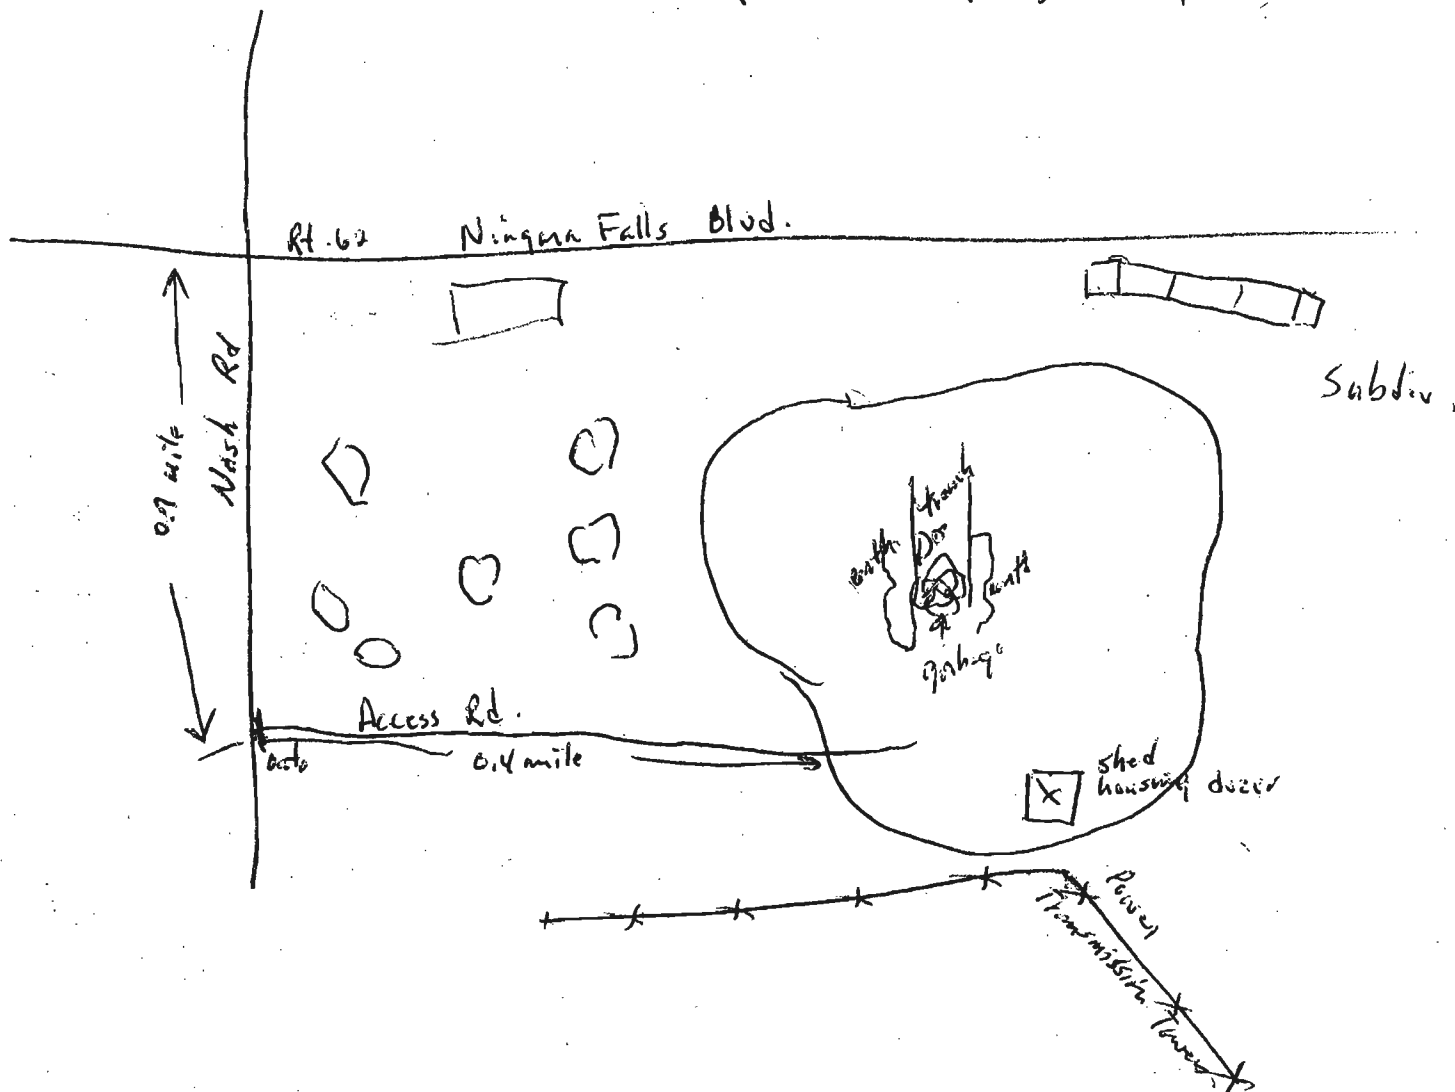 Rt. 62 Niagara Falls Blvd.
Nash Rd
0.9 mile
Subdiv.
trench
earth
earth
garbage
Access Rd.
gate
0.4 mile
shed
housing dozer
Power
Transmission Towers